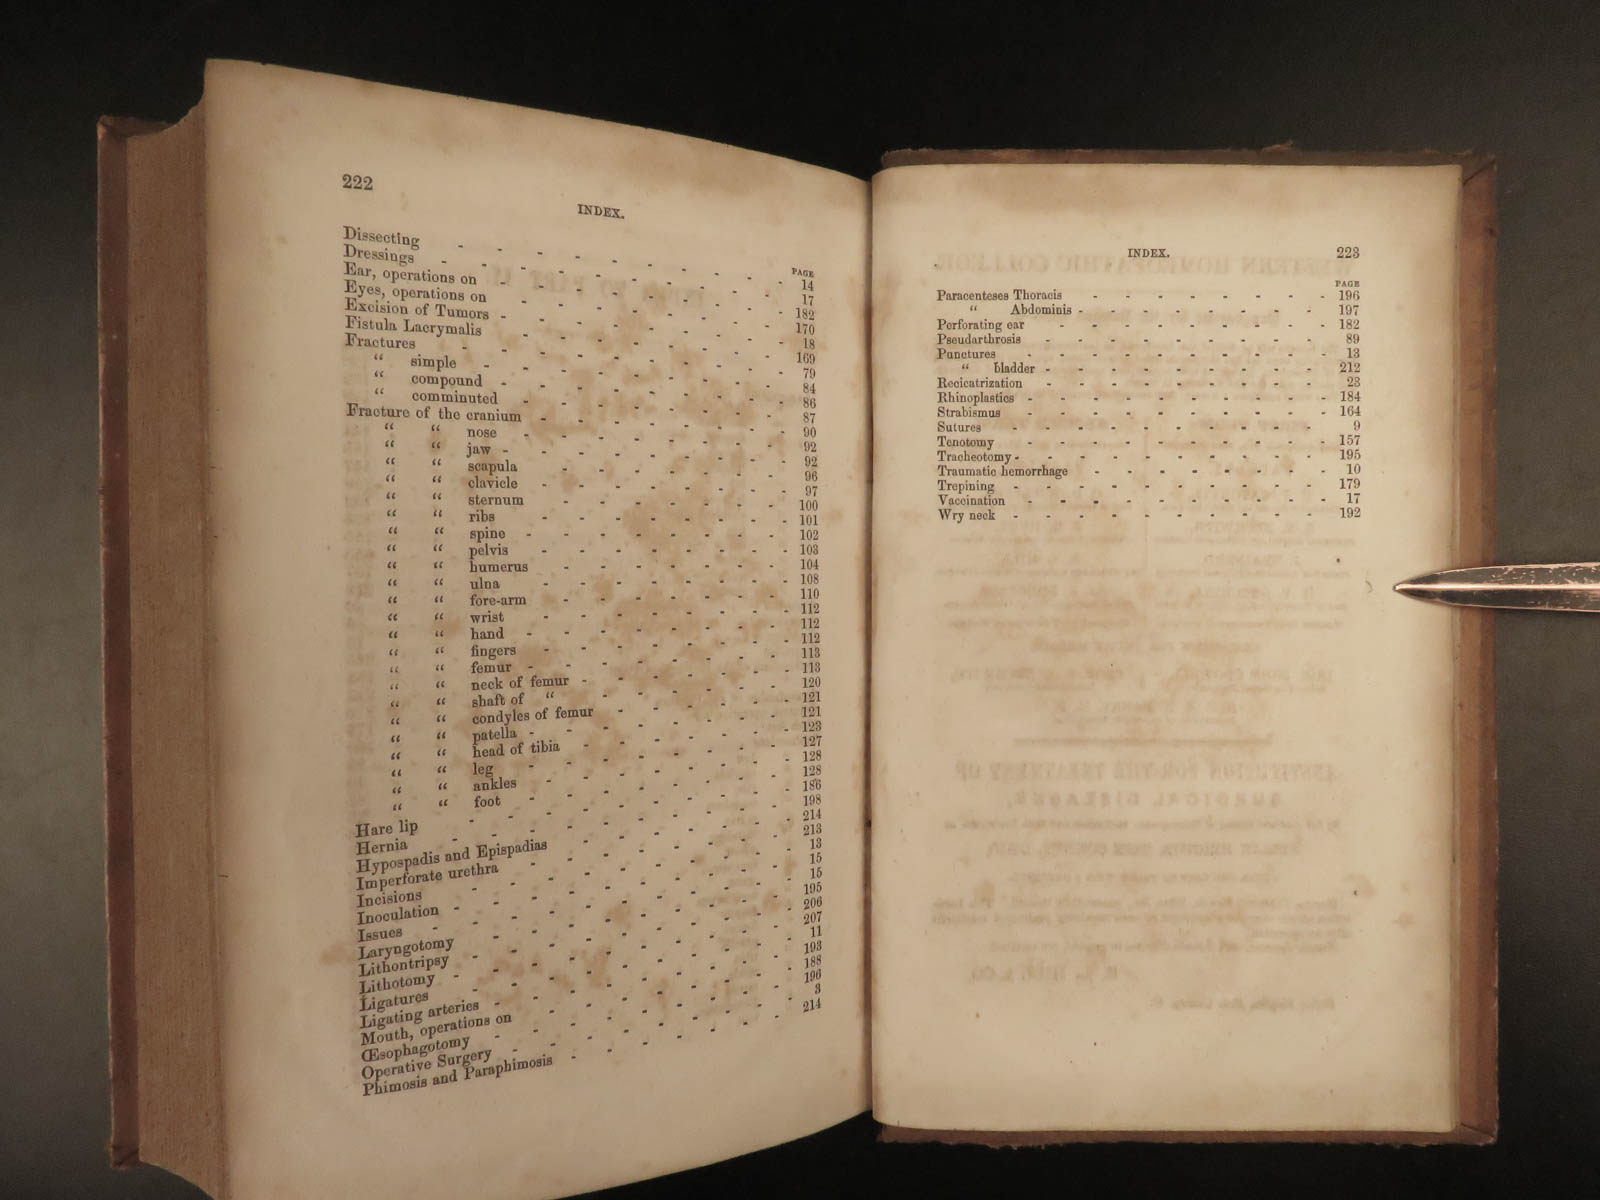 222
INDEX.
PAGE
Dissecting - - - - - - - - - 14
Dressings - - - - - - - - - 17
Ear, operations on - - - - - - - 182
Eyes, operations on - - - - - - - 170
Excision of Tumors - - - - - - - 18
Fistula Lacrymalis - - - - - - - 169
Fractures - - - - - - - - - 79
“ simple - - - - - - - - 84
“ compound - - - - - - - 86
“ comminuted - - - - - - - 87
Fracture of the cranium - - - - - - 90
“ “ nose - - - - - - - 92
“ “ jaw - - - - - - - 92
“ “ scapula - - - - - - 96
“ “ clavicle - - - - - - 97
“ “ sternum - - - - - - 100
“ “ ribs - - - - - - - 101
“ “ spine - - - - - - - 102
“ “ pelvis - - - - - - - 103
“ “ humerus - - - - - - 104
“ “ ulna - - - - - - - 108
“ “ fore-arm - - - - - - 110
“ “ wrist - - - - - - - 112
“ “ hand - - - - - - - 112
“ “ fingers - - - - - - - 112
“ “ femur - - - - - - - 113
“ “ neck of femur - - - - - - 113
“ “ shaft of “ - - - - - - 120
“ “ condyles of femur - - - - - 121
“ “ patella - - - - - - - 121
“ “ head of tibia - - - - - - 123
“ “ leg - - - - - - - 127
“ “ ankles - - - - - - - 128
“ “ foot - - - - - - - 128
Hare lip - - - - - - - - - 186
Hernia - - - - - - - - - 198
Hypospadis and Epispadias - - - - - - 214
Imperforate urethra - - - - - - - 213
Incisions - - - - - - - - - 13
Inoculation - - - - - - - - 15
Issues - - - - - - - - - 15
Laryngotomy - - - - - - - - 195
Lithontripsy - - - - - - - - 206
Lithotomy - - - - - - - - 207
Ligatures - - - - - - - - 11
Ligating arteries - - - - - - - 193
Mouth, operations on - - - - - - - 188
Œsophagotomy - - - - - - - 196
Operative Surgery - - - - - - - 3
Phimosis and Paraphimosis - - - - - - 214
INDEX. 223
PAGE
Paracenteses Thoracis - - - - - - - - 196
“ Abdominis - - - - - - - - 197
Perforating ear - - - - - - - - - 182
Pseudarthrosis - - - - - - - - - 89
Punctures - - - - - - - - - - 13
“ bladder - - - - - - - - - 212
Recicatrization - - - - - - - - - 23
Rhinoplastics - - - - - - - - - - 184
Strabismus - - - - - - - - - - 164
Sutures - - - - - - - - - - 9
Tenotomy - - - - - - - - - - 157
Tracheotomy - - - - - - - - - - 195
Traumatic hemorrhage - - - - - - - - 10
Trepining - - - - - - - - - - 179
Vaccination - - - - - - - - - - 17
Wry neck - - - - - - - - - - 192